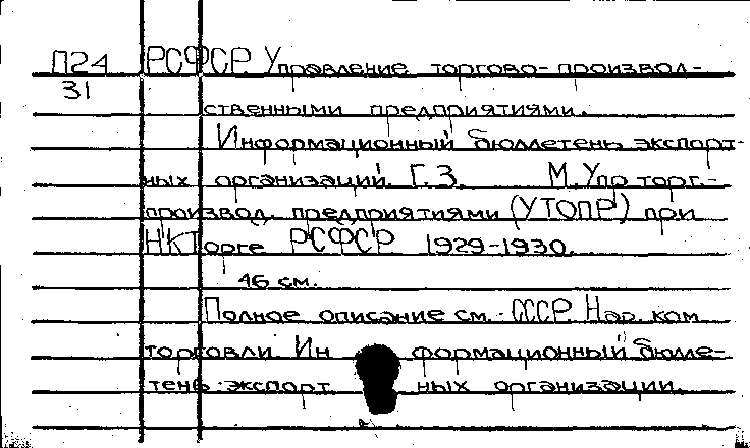 П24 РСФСР. Управление торгово-производ-
31
ственными предприятиями.
Информационный бюллетень экспорт-
ных организаций. Г.3. М. Упр. торг.-
производ. предприятиями (УТОПР) при
НКТорге РСФСР 1929-1930.
46 см.
Полное описание см.: СССР. Нар. ком.
торговли. Информационный бюлле-
тень экспортных организации.